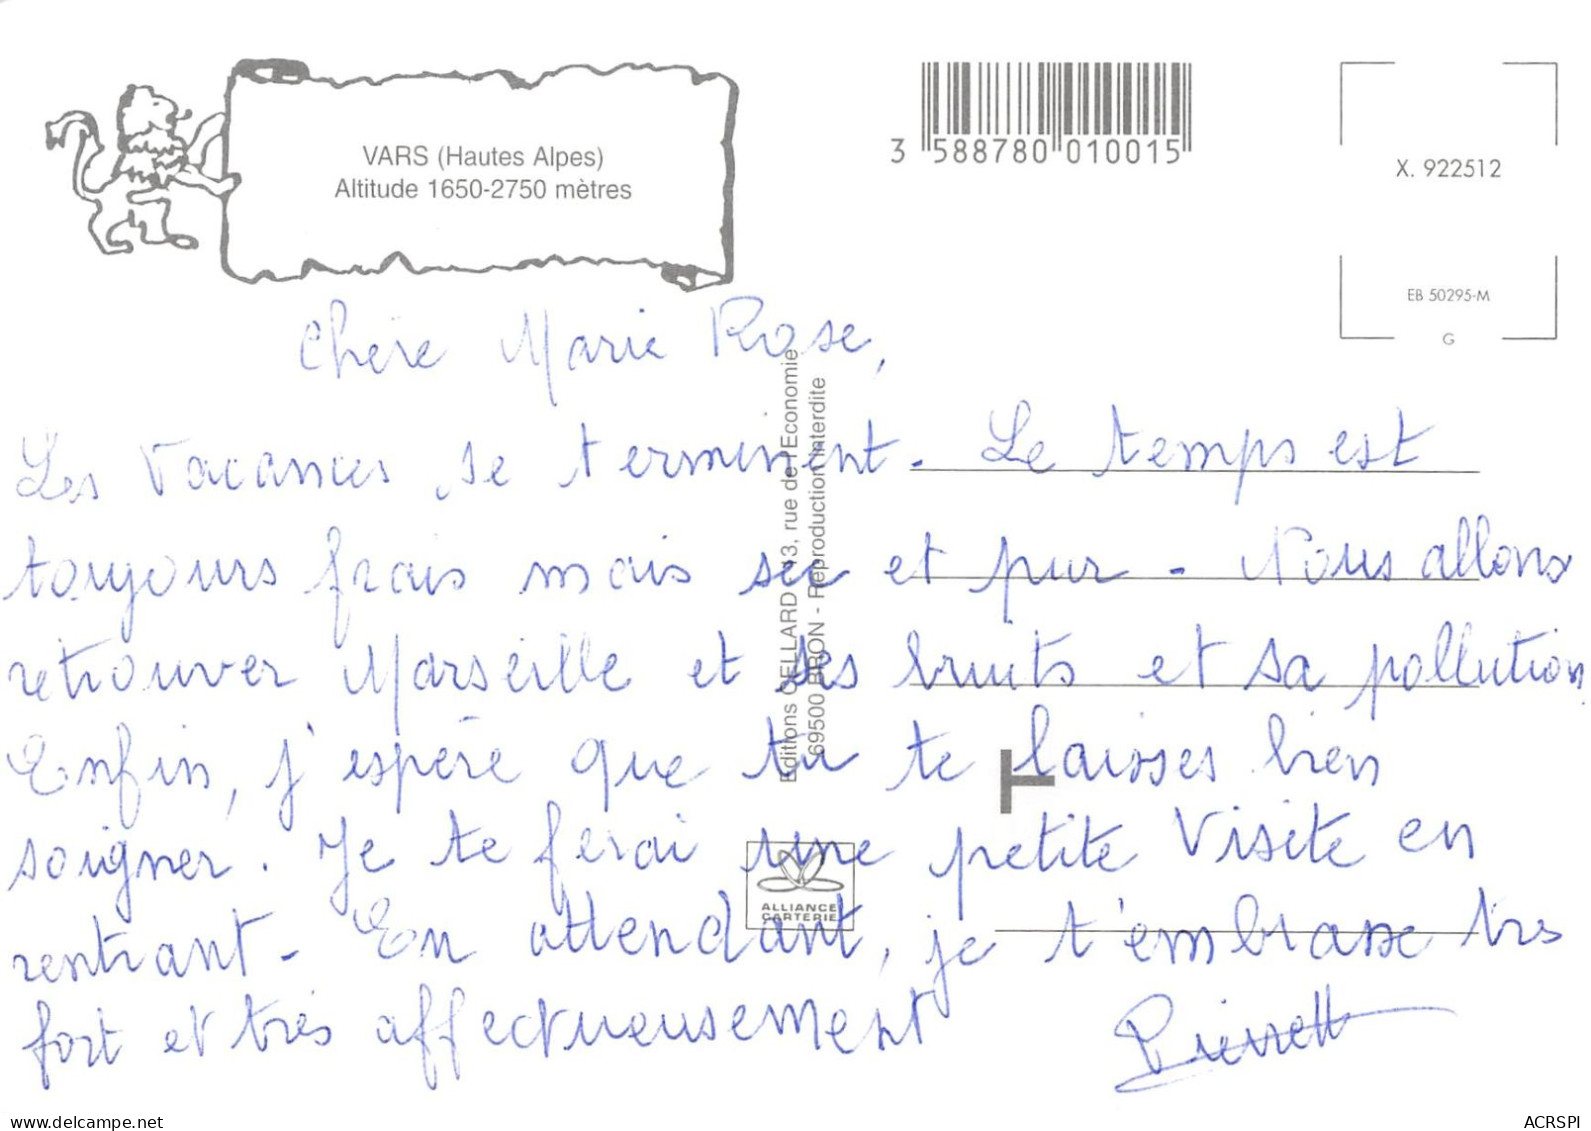 VARS (Hautes Alpes)
Altitude 1650-2750 mètres
3 588780 010015
X. 922512
EB 50295-M
G
Chère Marie Rose,
Les Vacances se terminent. Le temps est
toujours frais mais sec et pur - Nous allons
retrouver Marseille et ses bruits et sa pollution
Enfin, j'espère que tu te laisses bien
soigner. Je te ferai une petite visite en
rentrant - En attendant, je t'embrasse très
fort et très affectueusement
Pierrette
Editions CELLARD 43, rue de l'Economie
69500 BRON - Reproduction Interdite
T
ALLIANCE
CARTERIE
www.delcampe.net
ACRSPI